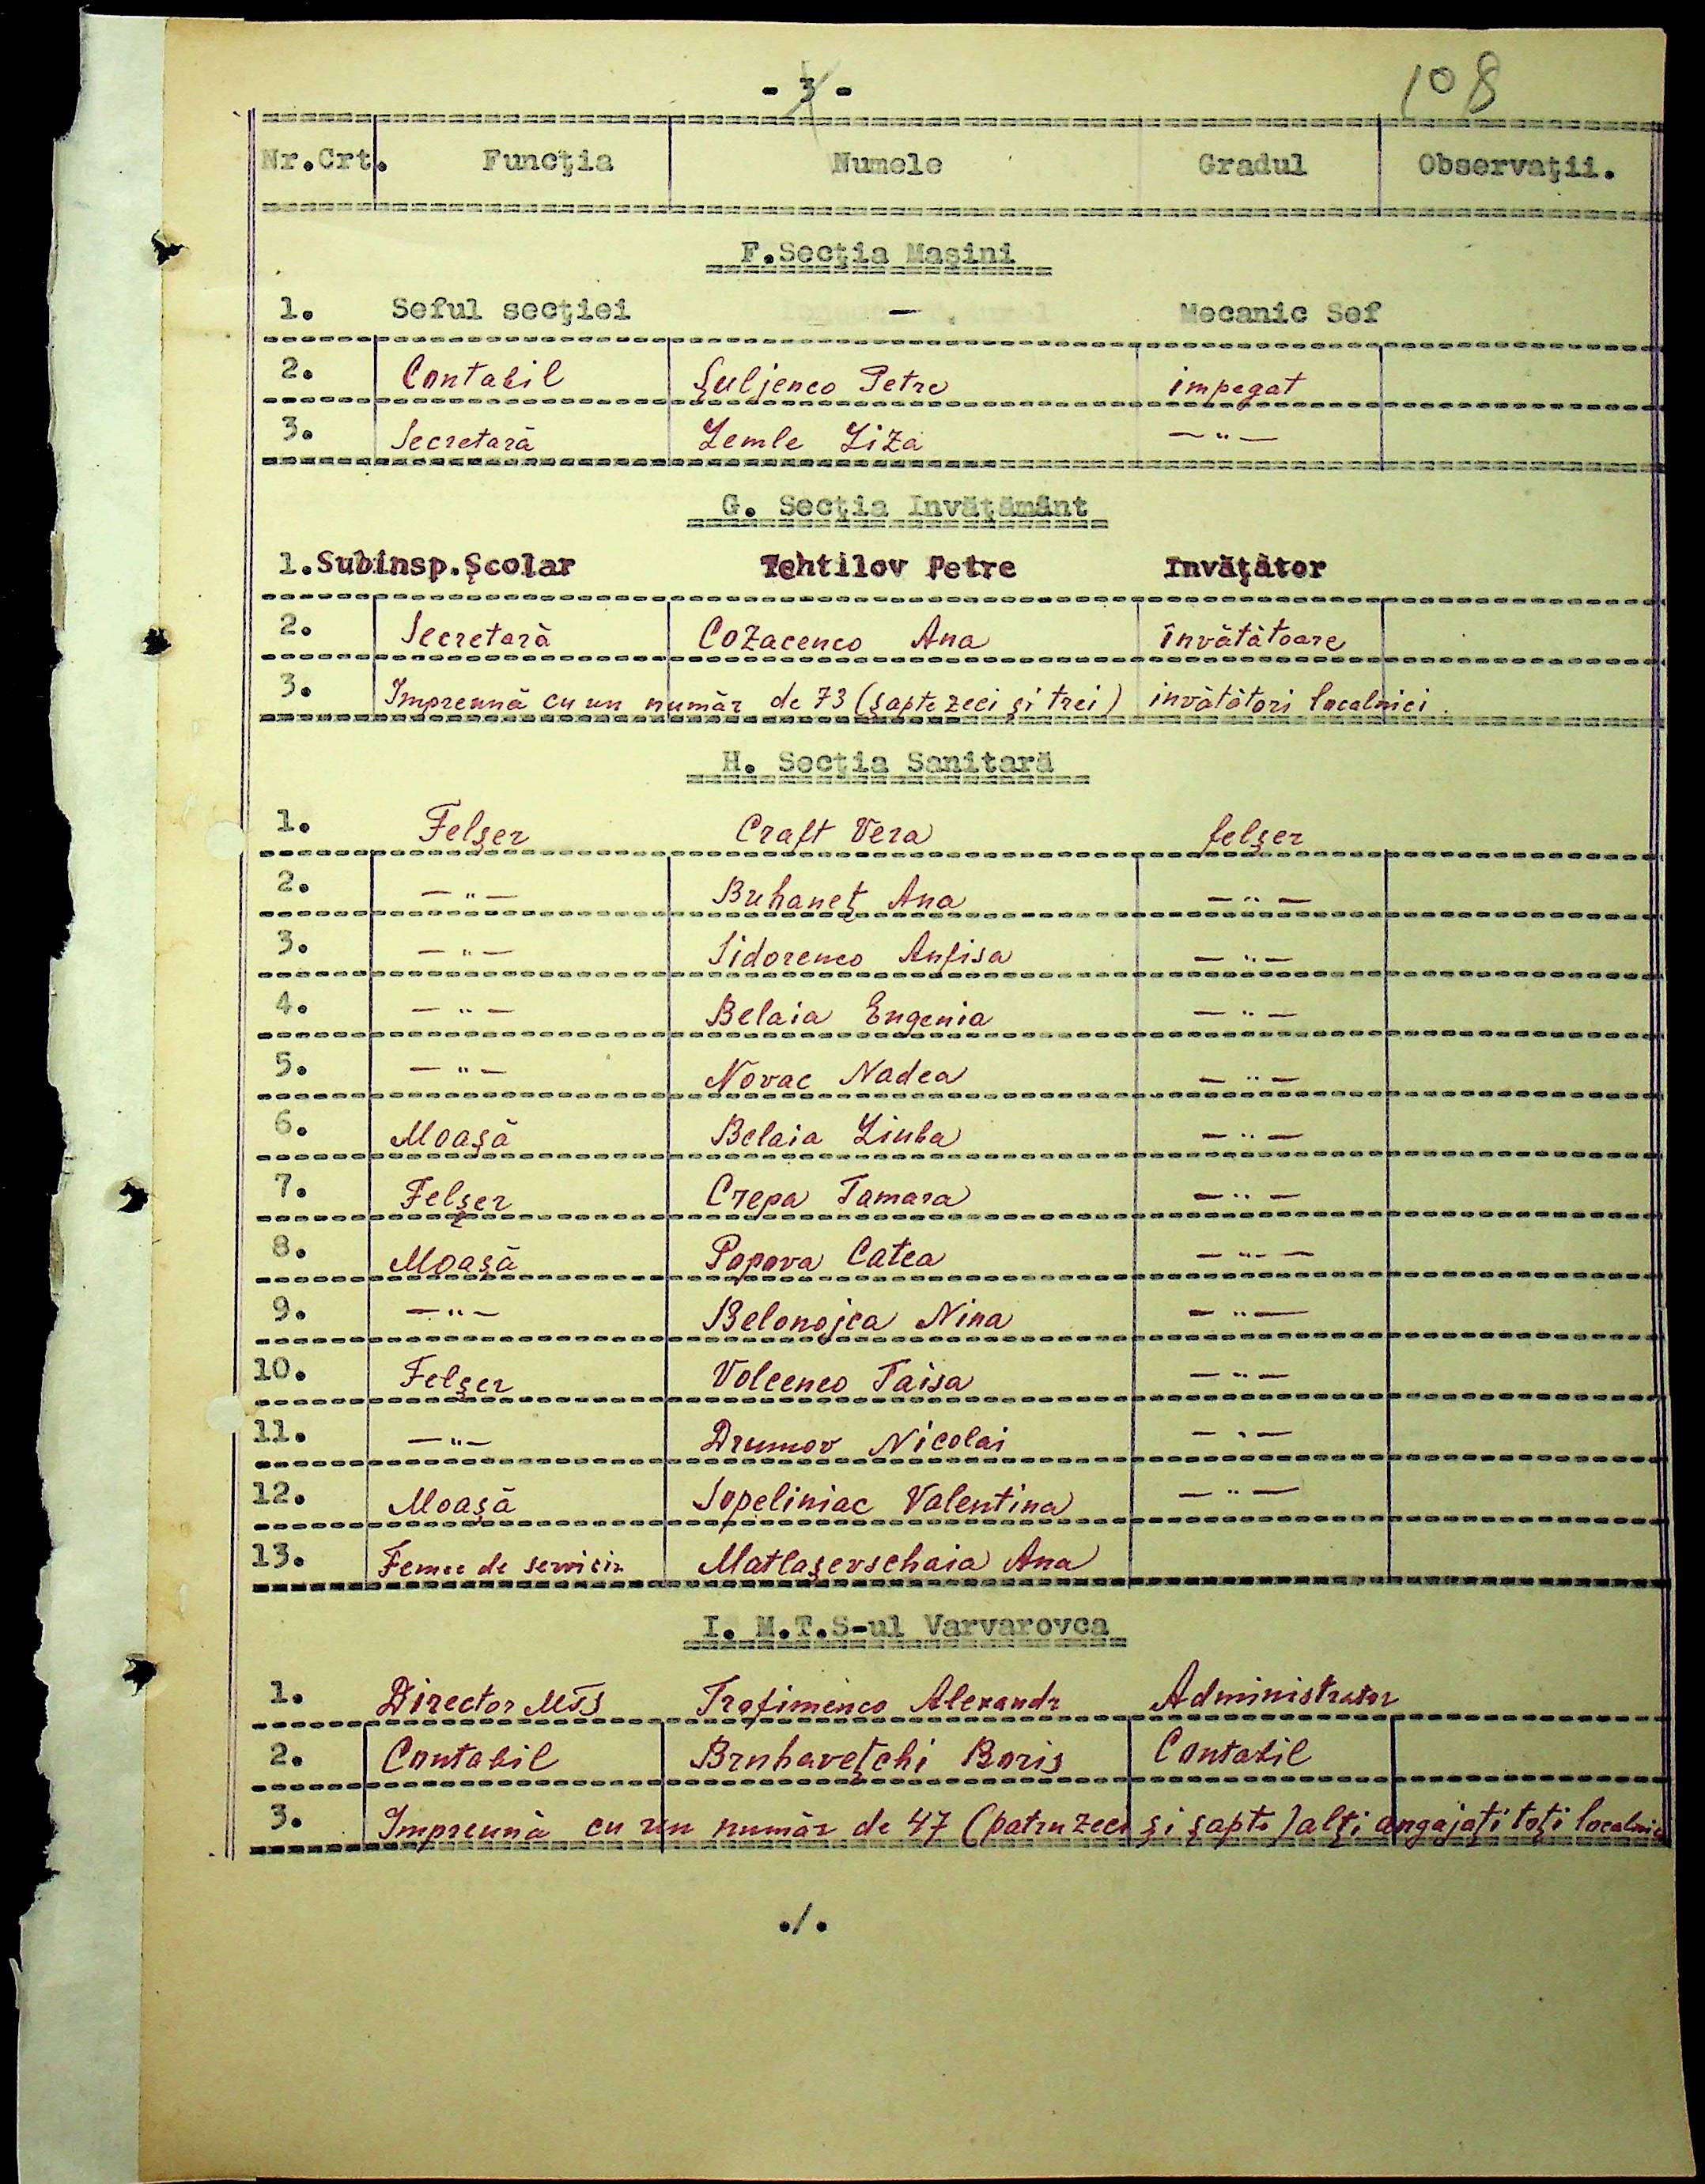 - 3 -
108
Nr.Crt. Funcţia Numele Gradul Observaţii.
F.Secţia Maşini
1. Seful secţiei — Mecanic Sef
2. Contabil Şuljenco Petre impegat
3. Secretară Lemle Liza —"—
G. Secţia Invăţământ
1.Subinsp.Şcolar Tehtilov Petre Invăţător
2. Secretară Cozacenco Ana învătătoare
3. Impreună cu un număr de 73 (şaptezeci şi trei) invătători localnici.
H. Secţia Sanitară
1. Felşer Craft Vera felşer
2. —"— Buhaneţ Ana —"—
3. —"— Sidorenco Anfisa —"—
4. —"— Belaia Eugenia —"—
5. —"— Novac Nadea —"—
6. Moaşă Belaia Liuba —"—
7. Felşer Crepa Tamara —"—
8. Moaşă Popova Catea —"—
9. —"— Belonojca Nina —"—
10. Felşer Volcenco Taisa —"—
11. —"— Drumov Nicolai —"—
12. Moaşă Sopeliniac Valentina —"—
13. Femee de serviciu Matlaşevschaia Ana
I. M.T.S-ul Varvarovca
1. Director MTS Trofimenco Alexandr Administrator
2. Contabil Bruhaveţchi Boris Contabil
3. Impreună cu un număr de 47 (patruzeci şi şapte) alţi angajaţi toţi localnici
./.